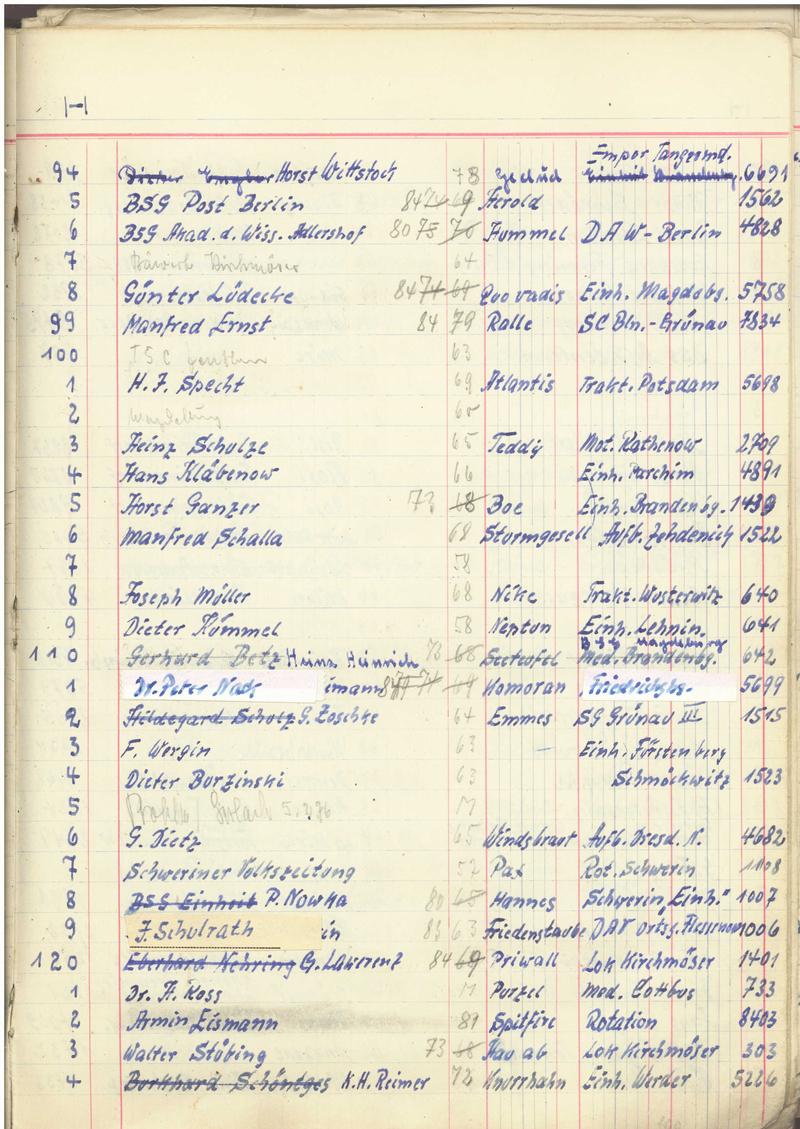 H
Empor Tangermd.
94 Horst Wittstock 78 6691
5 BSG Post Berlin 84 74 69 Herold 1562
6 BSG Akad. d. Wiss. Adlershof 80 75 70 Hummel DAW-Berlin 4828
7 64
8 Günter Lüdecke 84 74 69 Quo vadis Einh. Magdebg. 5758
99 Manfred Ernst 84 79 Ralle SC Bln.-Grünau 7834
100 63
1 H. J. Specht 69 Atlantis Trakt. Potsdam 5698
2 Magdeburg
3 Heinz Schulze 65 Teddy Mot. Rathenow 2709
4 Hans Kläbenow 66 Einh. Parchim 4891
5 Horst Ganzer 73 68 Boe Einh. Brandenbg. 1439
6 Manfred Schalla 68 Sturmgesell Aufb. Zehdenick 1522
7 58
8 Joseph Möller 68 Nike Trakt. Wusterwitz 640
9 Dieter Hümmel 58 Neptun Einh. Lehnin. 641
BSG Magdeburg
110 Gerhard Betz Heinz Heinrich 73 68 Seeteufel Med. Brandenbg. 642
1 Dr. Peter 69 Homoran Friedrichs 5699
2 Hildegard Scholz G. Zoschke 64 Emmes SG Grünau III 1515
3 F. Wergin 63 Einh. Fürstenberg
4 Dieter Burzinski 63 Schmöckwitz 1523
5
6 G. Dietz 65 Windsbraut Aufb. Dresd. N. 4682
7 Schweriner Volkszeitung 57 Pax Rot. Schwerin 1108
8 BSG Einheit P. Nowka 80 65 Hannes Schwerin „Einh." 1007
9 J. Schulrath in 83 63 Friedenstaube DAV 1006
120 Eberhard Nehring G. Lawerenz 84 69 Priwall Lok Kirchmöser 1401
1 Dr. H. Koss Purzel Med. Cottbus 733
2 Armin Eismann 81 Spitfire Rotation 8403
3 Walter Stübing 73 68 Hau ab Lok Kirchmöser 303
4 Burkhard Schöntges K.H. Reimer 72 Knurrhahn Einh. Werder 5226